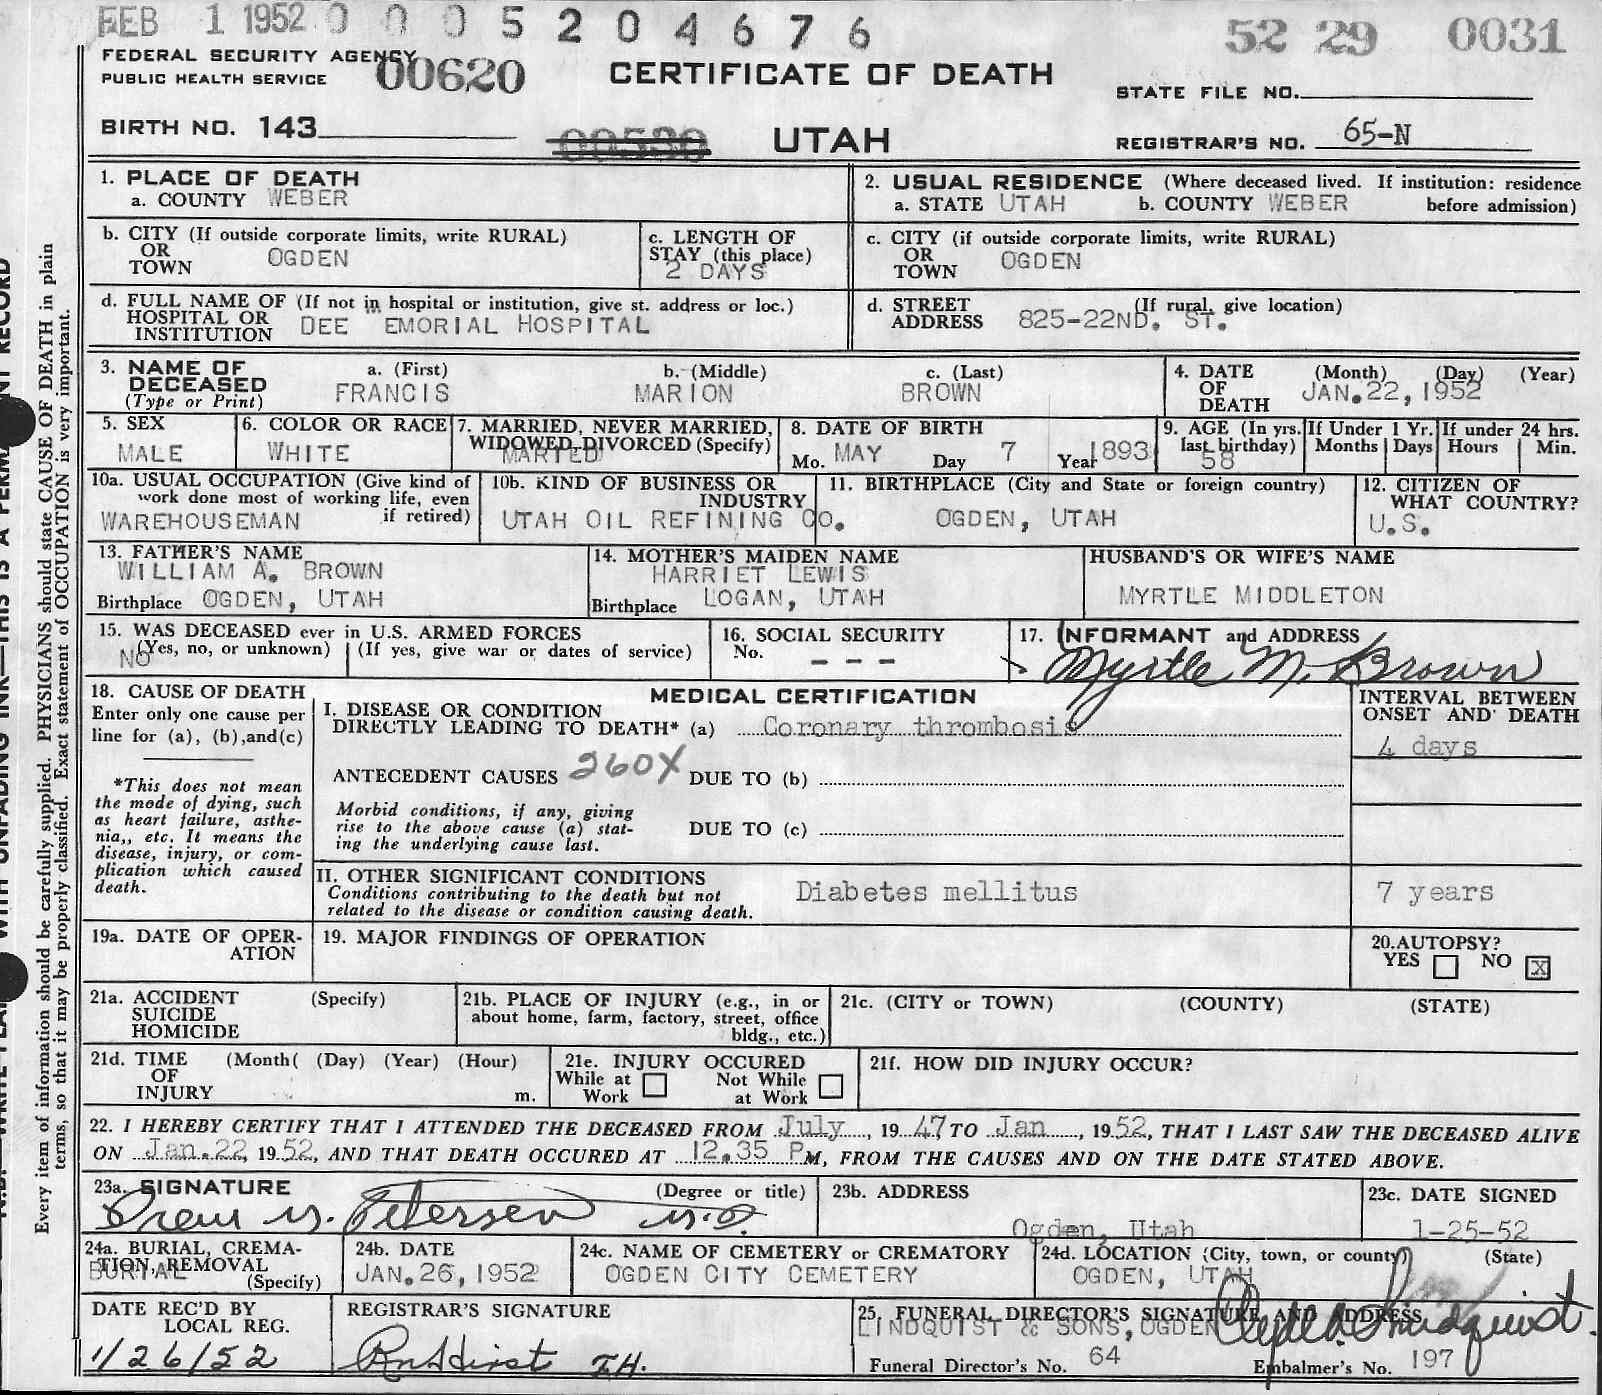 FEB 1 1952 0 0 0 5 2 0 4 6 7 6 52 29 0031
FEDERAL SECURITY AGENCY
PUBLIC HEALTH SERVICE 00620 CERTIFICATE OF DEATH STATE FILE NO.
BIRTH NO. 143 00530 UTAH REGISTRAR'S NO. 65-N
1. PLACE OF DEATH
a. COUNTY WEBER
2. USUAL RESIDENCE (Where deceased lived. If institution: residence before admission)
a. STATE UTAH b. COUNTY WEBER
b. CITY (If outside corporate limits, write RURAL)
OR TOWN OGDEN
c. LENGTH OF STAY (this place)
2 DAYS
c. CITY (if outside corporate limits, write RURAL)
OR TOWN OGDEN
d. FULL NAME OF (If not in hospital or institution, give st. address or loc.)
HOSPITAL OR INSTITUTION DEE EMORIAL HOSPITAL
d. STREET ADDRESS (If rural, give location)
825-22ND. ST.
3. NAME OF DECEASED (Type or Print)
a. (First) b. (Middle) c. (Last)
FRANCIS MARION BROWN
4. DATE OF DEATH (Month) (Day) (Year)
JAN.22, 1952
5. SEX
MALE
6. COLOR OR RACE
WHITE
7. MARRIED, NEVER MARRIED, WIDOWED, DIVORCED (Specify)
MARIED
8. DATE OF BIRTH
Mo. MAY Day 7 Year 1893
9. AGE (In yrs. last birthday) If Under 1 Yr. Months Days If under 24 hrs. Hours Min.
58
10a. USUAL OCCUPATION (Give kind of work done most of working life, even if retired)
WAREHOUSEMAN
10b. KIND OF BUSINESS OR INDUSTRY
UTAH OIL REFINING CO.
11. BIRTHPLACE (City and State or foreign country)
OGDEN, UTAH
12. CITIZEN OF WHAT COUNTRY?
U.S.
13. FATHER'S NAME
WILLIAM A. BROWN
Birthplace OGDEN, UTAH
14. MOTHER'S MAIDEN NAME
HARRIET LEWIS
Birthplace LOGAN, UTAH
HUSBAND'S OR WIFE'S NAME
MYRTLE MIDDLETON
15. WAS DECEASED ever in U.S. ARMED FORCES
(Yes, no, or unknown) (If yes, give war or dates of service)
NO
16. SOCIAL SECURITY
No. - - -
17. INFORMANT and ADDRESS
Myrtle M. Brown
18. CAUSE OF DEATH
Enter only one cause per
line for (a), (b), and (c)
*This does not mean
the mode of dying, such
as heart failure, asthe-
nia,, etc. It means the
disease, injury, or com-
plication which caused
death.
MEDICAL CERTIFICATION
INTERVAL BETWEEN
ONSET AND DEATH
I. DISEASE OR CONDITION
DIRECTLY LEADING TO DEATH* (a) Coronary thrombosis 4 days
ANTECEDENT CAUSES 260X DUE TO (b)
Morbid conditions, if any, giving
rise to the above cause (a) stat-
ing the underlying cause last.
DUE TO (c)
II. OTHER SIGNIFICANT CONDITIONS
Conditions contributing to the death but not
related to the disease or condition causing death.
Diabetes mellitus 7 years
19a. DATE OF OPER-
ATION
19. MAJOR FINDINGS OF OPERATION
20. AUTOPSY?
YES NO X
21a. ACCIDENT (Specify)
SUICIDE
HOMICIDE
21b. PLACE OF INJURY (e.g., in or
about home, farm, factory, street, office
bldg., etc.)
21c. (CITY or TOWN) (COUNTY) (STATE)
21d. TIME (Month( (Day) (Year) (Hour)
OF
INJURY m.
21e. INJURY OCCURED
While at Work Not While at Work
21f. HOW DID INJURY OCCUR?
22. I HEREBY CERTIFY THAT I ATTENDED THE DECEASED FROM July, 19 47 TO Jan, 19 52, THAT I LAST SAW THE DECEASED ALIVE
ON Jan.22, 19 52, AND THAT DEATH OCCURED AT 12.35 P M, FROM THE CAUSES AND ON THE DATE STATED ABOVE.
23a. SIGNATURE (Degree or title)
Drew M. Petersen M.D.
23b. ADDRESS
Ogden, Utah
23c. DATE SIGNED
1-25-52
24a. BURIAL, CREMA-
TION, REMOVAL (Specify)
BURIAL
24b. DATE
JAN.26, 1952
24c. NAME OF CEMETERY or CREMATORY
OGDEN CITY CEMETERY
24d. LOCATION (City, town, or county) (State)
OGDEN, UTAH
DATE REC'D BY
LOCAL REG.
1/26/52
REGISTRAR'S SIGNATURE
25. FUNERAL DIRECTOR'S SIGNATURE AND ADDRESS
LINDQUIST & SONS, OGDEN Clyde Lindquist
Funeral Director's No. 64 Embalmer's No. 197
Every item of information should be carefully supplied. PHYSICIANS should state CAUSE OF DEATH in plain
terms, so that it may be properly classified. Exact statement of OCCUPATION is very important.